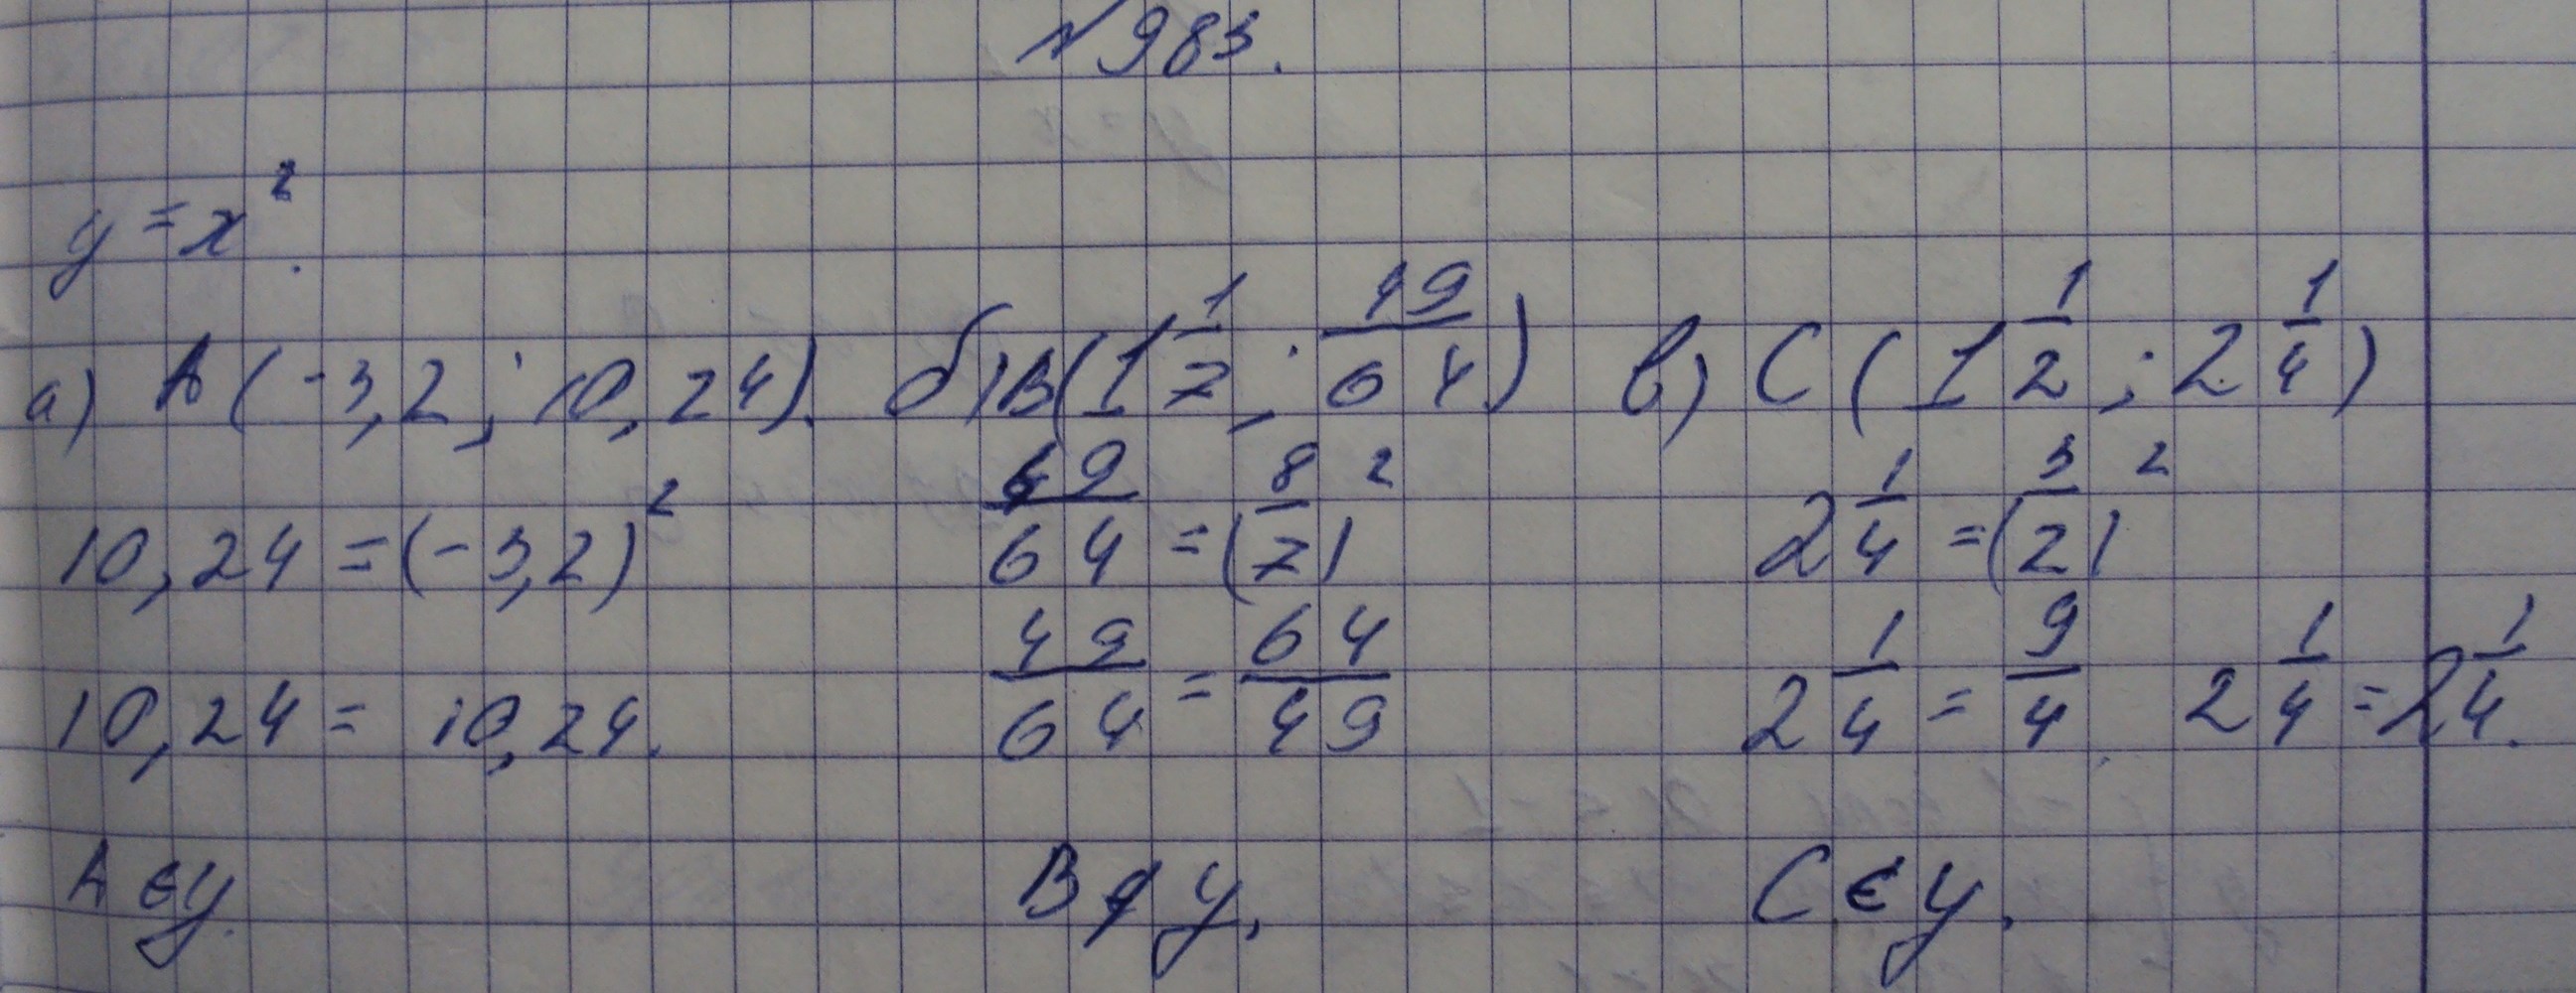 №983.
y = x².
а) A(-3,2; 10,24). б) B(1 1/7; 49/64) в) C(1 1/2; 2 1/4)
10,24 = (-3,2)² 49/64 = (8/7)² 2 1/4 = (3/2)²
10,24 = 10,24. 49/64 = 64/49 2 1/4 = 9/4. 2 1/4 = 2 1/4.
A ∈ y. B ∉ y. C ∈ y.